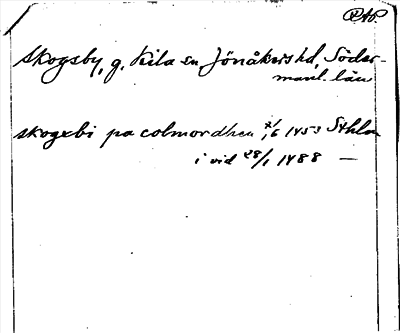 RAP.
Skogsby, g. Kila sn, Jönåkers hd, Söder-
manl. län
skogxbi pa colmordhen 21/6 1453 Sthlm
i vid 28/1 1488 —